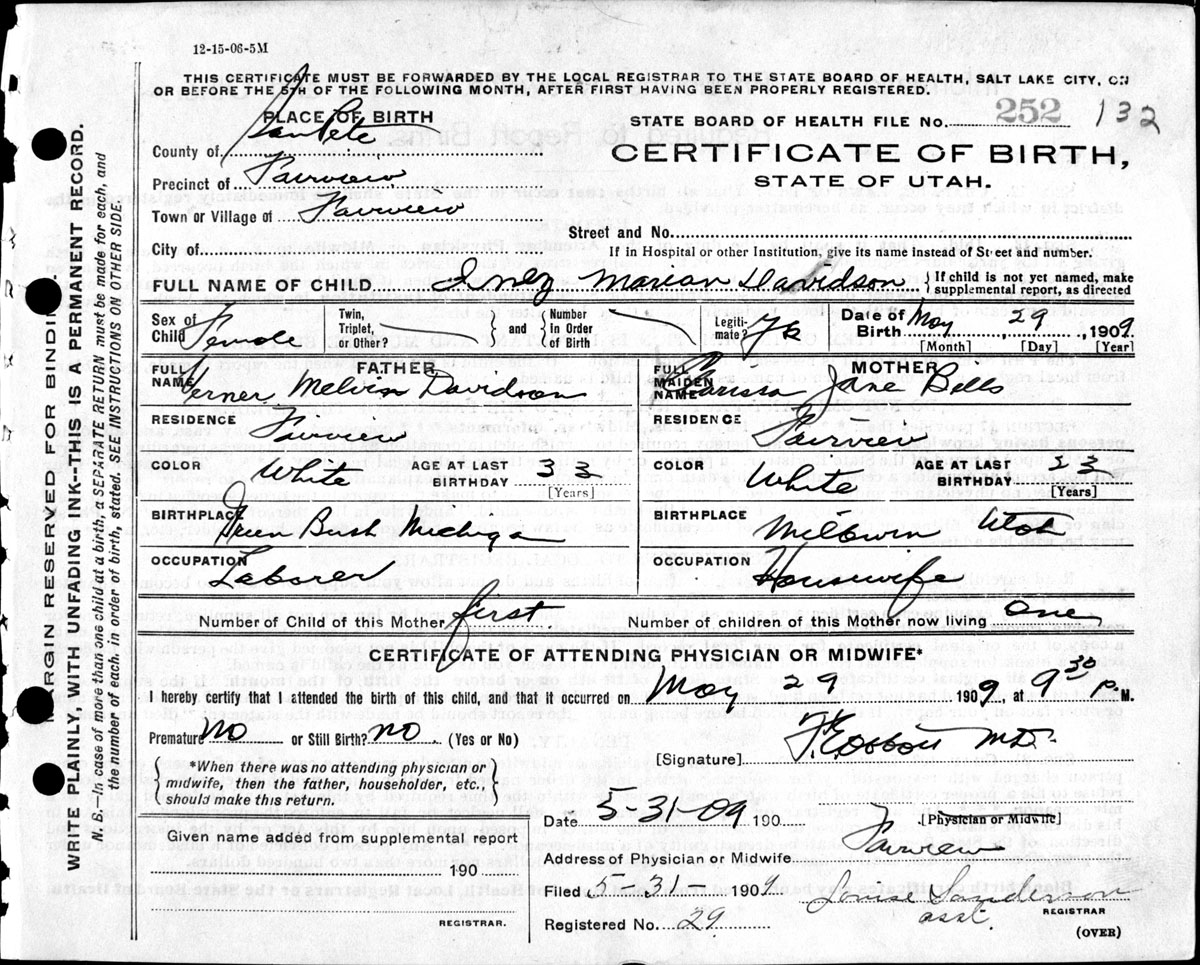 12-15-06-5M
THIS CERTIFICATE MUST BE FORWARDED BY THE LOCAL REGISTRAR TO THE STATE BOARD OF HEALTH, SALT LAKE CITY, ON
OR BEFORE THE 5TH OF THE FOLLOWING MONTH, AFTER FIRST HAVING BEEN PROPERLY REGISTERED.
PLACE OF BIRTH
STATE BOARD OF HEALTH FILE No. 252 132
County of SanPete
CERTIFICATE OF BIRTH,
STATE OF UTAH.
Precinct of Fairview
Town or Village of Fairview
Street and No.
City of
If in Hospital or other Institution, give its name instead of Street and number.
FULL NAME OF CHILD Marian Davidson { If child is not yet named, make supplemental report, as directed
Sex of Child Female Twin, Triplet, or Other? { and } Number In Order of Birth Legiti-mate? Date of Birth May 29 1909
[Month] [Day] [Year]
FATHER MOTHER
FULL NAME Verner Melvin Davidson FULL MAIDEN NAME Larissa Jane Bills
RESIDENCE Fairview RESIDENCE Fairview
COLOR White AGE AT LAST BIRTHDAY 33 [Years] COLOR White AGE AT LAST BIRTHDAY 23 [Years]
BIRTHPLACE Green Bush Michiga BIRTHPLACE Utah
OCCUPATION Laborer OCCUPATION Housewife
Number of Child of this Mother first Number of children of this Mother now living one
CERTIFICATE OF ATTENDING PHYSICIAN OR MIDWIFE*
I hereby certify that I attended the birth of this child, and that it occurred on May 29 1909, at 9 30 P. M.
Premature no or Still Birth? no. (Yes or No)
[Signature] M.D.
{ *When there was no attending physician or midwife, then the father, householder, etc., should make this return. }
Date 5-31-09 190
[Physician or Midwife]
Given name added from supplemental report
190
Address of Physician or Midwife Fairview
Filed 5-31- 1909 Louise Sanderson
asst. REGISTRAR
REGISTRAR.
Registered No. 29
(OVER)
MARGIN RESERVED FOR BINDING
WRITE PLAINLY, WITH UNFADING INK--THIS IS A PERMANENT RECORD.
B.—In case of more than one child at a birth, a SEPARATE RETURN must be made for each, and
the number of each, in order of birth, stated. SEE INSTRUCTIONS ON OTHER SIDE.